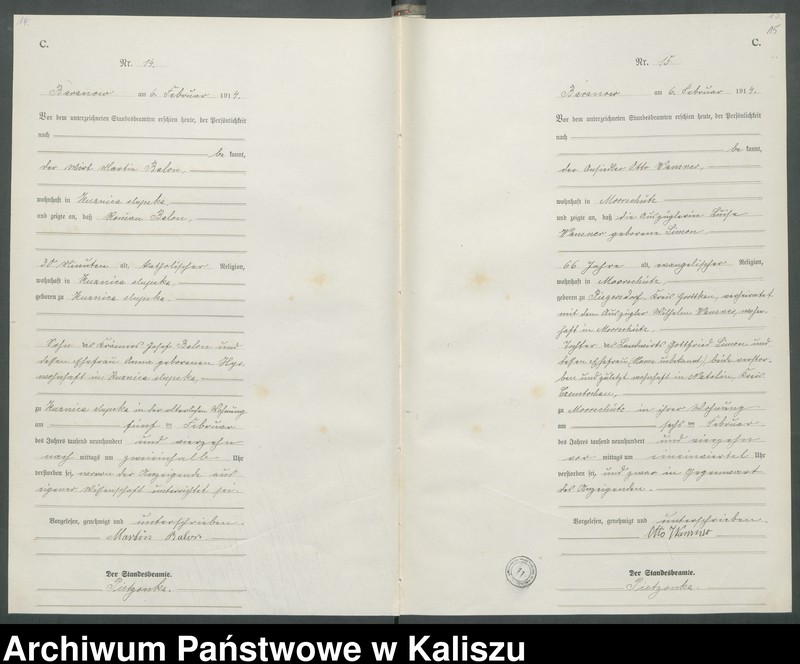 14.
C.
Nr. 14.
Baranow am 6. Februar 1914.
Vor dem unterzeichneten Standesbeamten erschien heute, der Persönlichkeit
nach
be kannt,
der Wirt Martin Balon,
wohnhaft in Kuznica slupska,
und zeigte an, daß Roman Balon,
30 Minuten alt, katholischer Religion,
wohnhaft in Kuznica slupska,
geboren zu Kuznica slupska.
Sohn des Krämers Josef Balon und
dessen Ehefrau Anna geborenen
wohnhaft in Kuznica slupska,
zu Kuznica slupska in der elterlichen Wohnung
am fünf ten Februar
des Jahres tausend neunhundert und vierzehn
nach mittags um zweieinhalb Uhr
verstorben sei, wovon der Anzeigende aus
eigener Wissenschaft unterrichtet sei.
Vorgelesen, genehmigt und unterschrieben.
Martin Balon
Der Standesbeamte.
Pietzonka.
15
C.
Nr. 15.
Baranow am 6. Februar 1914.
Vor dem unterzeichneten Standesbeamten erschien heute, der Persönlichkeit
nach
be kannt,
der Ansiedler Otto
wohnhaft in Moorschütz
und zeigte an, daß die Auszüglerin Luise
geborene Simon
66 Jahre alt, evangelischer Religion,
wohnhaft in Moorschütz,
geboren zu Kreis verheiratet
mit dem Auszügler Wilhelm wohn-
haft in Moorschütz,
Tochter des Landwirts Gottfried Simon und
dessen Ehefrau (Name unbekannt) beide verstor-
ben und zuletzt wohnhaft in Kreis
zu Moorschütz in ihrer Wohnung
am sechs ten Februar
des Jahres tausend neunhundert und vierzehn
vor mittags um einein viertel Uhr
verstorben sei, und zwar in Gegenwart
des Anzeigenden.
Vorgelesen, genehmigt und unterschrieben.
Otto
Der Standesbeamte.
Pietzonka.
11
Archiwum Państwowe w Kaliszu